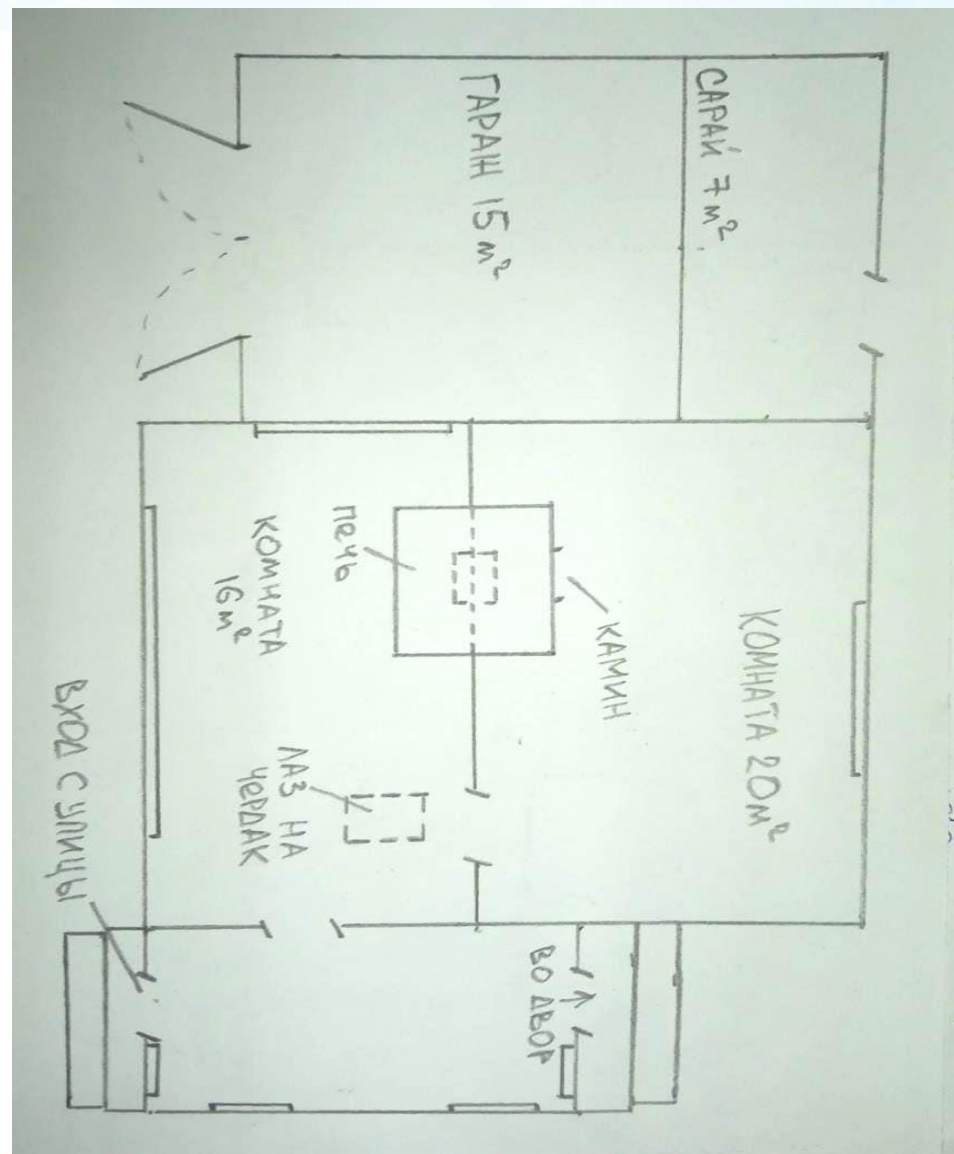 САРАЙ 7м²
ГАРАЖ 15м²
КОМНАТА 20м²
КАМИН
ПЕЧЬ
КОМНАТА
16м²
ЛАЗ НА
ЧЕРДАК
ВО ДВОР
ВХОД С УЛИЦЫ